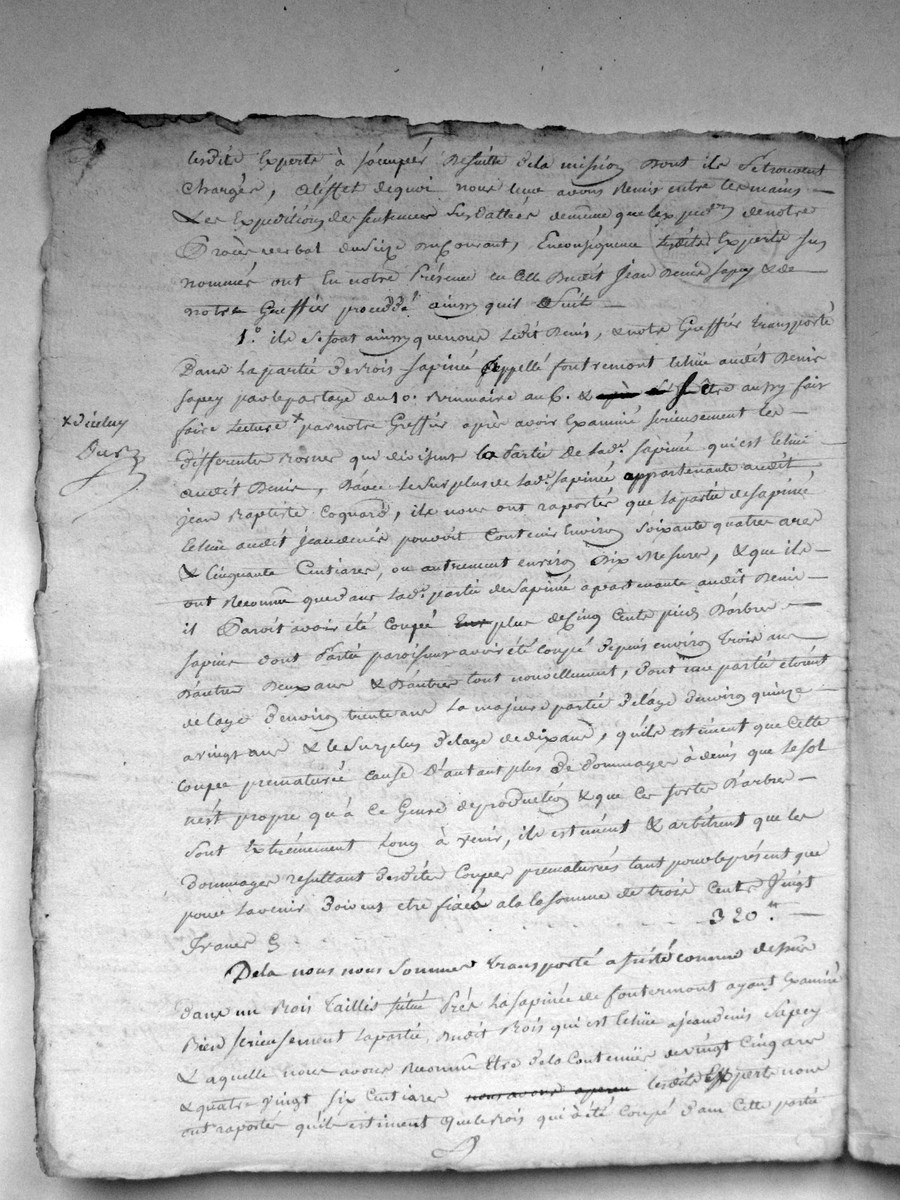 lesdits Experts à s'occuper de suitte de la mission dont ils se trouvent
Chargés, a l'effet de quoi nous leur avons Remis entre les mains
Les Expeditions des sentences de même que de notre
Procès verbal du Courant, En conséquence lesdits Experts sus
nommés ont En notre Présence en Celle Dudit Jean Denis Sapey & de
notre Greffier procedé ainsy quil Suit
1.° ils se sont ainsy que nous Ledit Denis, & notre Greffier transporté
Dans la partie de Bois Sapiné Appellé fontremont Echüe audit Denis
Sapey par le partage du 10. Brumaire an 6. & aussy fait
faire Lecture x par notre Greffier après avoir Examiné serieusement les
x d'iceluy
differentes Bornes qui divisent la Partie de Lad.e Sapiné qui est Echüe
audit Denis, D'avec Le surplus de Lad.e Sapiné appartenante audit
Jean Baptiste Coquard, ils nous ont raportés que la partie de Sapiné
Echüe audit Jean denis pouvoit Contenir Environ Soixante quatre ares
& Cinquante Centiares, ou autrement environ Dix Mesures, & que ils
ont Reconnu que dans Lad.e partie de Sapiné apartenante audit Denis
il Paroit avoir été Coupé plus de Cinq Cents pieds D'arbres
sapins dont Partie paroissent avoir été Coupé depuis environ trois ans
D'autres Deux ans & D'autres tout nouvellement, dont une partie etoient
de l'age d'environ trente ans La majeure partie de l'age d'environ quinze
a vingt ans & le Surplus de l'age de dix ans, qu'ils estiment que Cette
Coupe prematurée Cause D'autant plus De Dommages à denis que Le sol
n'est propre qu'à Ce Genre de production & que Ces sortes D'arbres
sont Extrêmement Long à venir, ils estiment & arbitrent que les
Dommages resultant desdites Coupes prematurées tant pour le présent que
pour L'avenir Doivent etre fixés a la somme de trois Cents Vingt
Francs 320
De la nous nous Sommes transporté assisté comme dessus
dans un Bois taillis situé Près La Sapinée de fontermont ayant Examiné
Bien serieusement La partie Dudit Bois qui est Echüe a Jean denis Sapey
Laquelle Nous avons Reconnu Etre de la Contenüe de vingt Cinq ares
& quatre vingt Six Centiares nous avons aperçu lesdits Experts nous
ont raportés qu'ils estiment que le Bois qui a été Coupé dans Cette partie